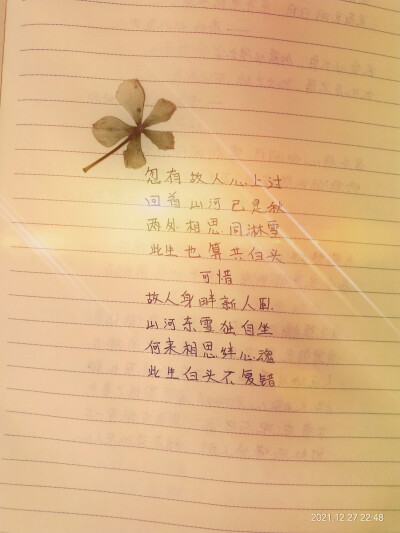 忽有故人心上过
回首山河已是秋
两处相思同淋雪
此生也算共白头
可惜
故人身畔新人卧
山河东雪独自坐
何来相思绊心魂
此生白头不复错
2021.12.27 22:48